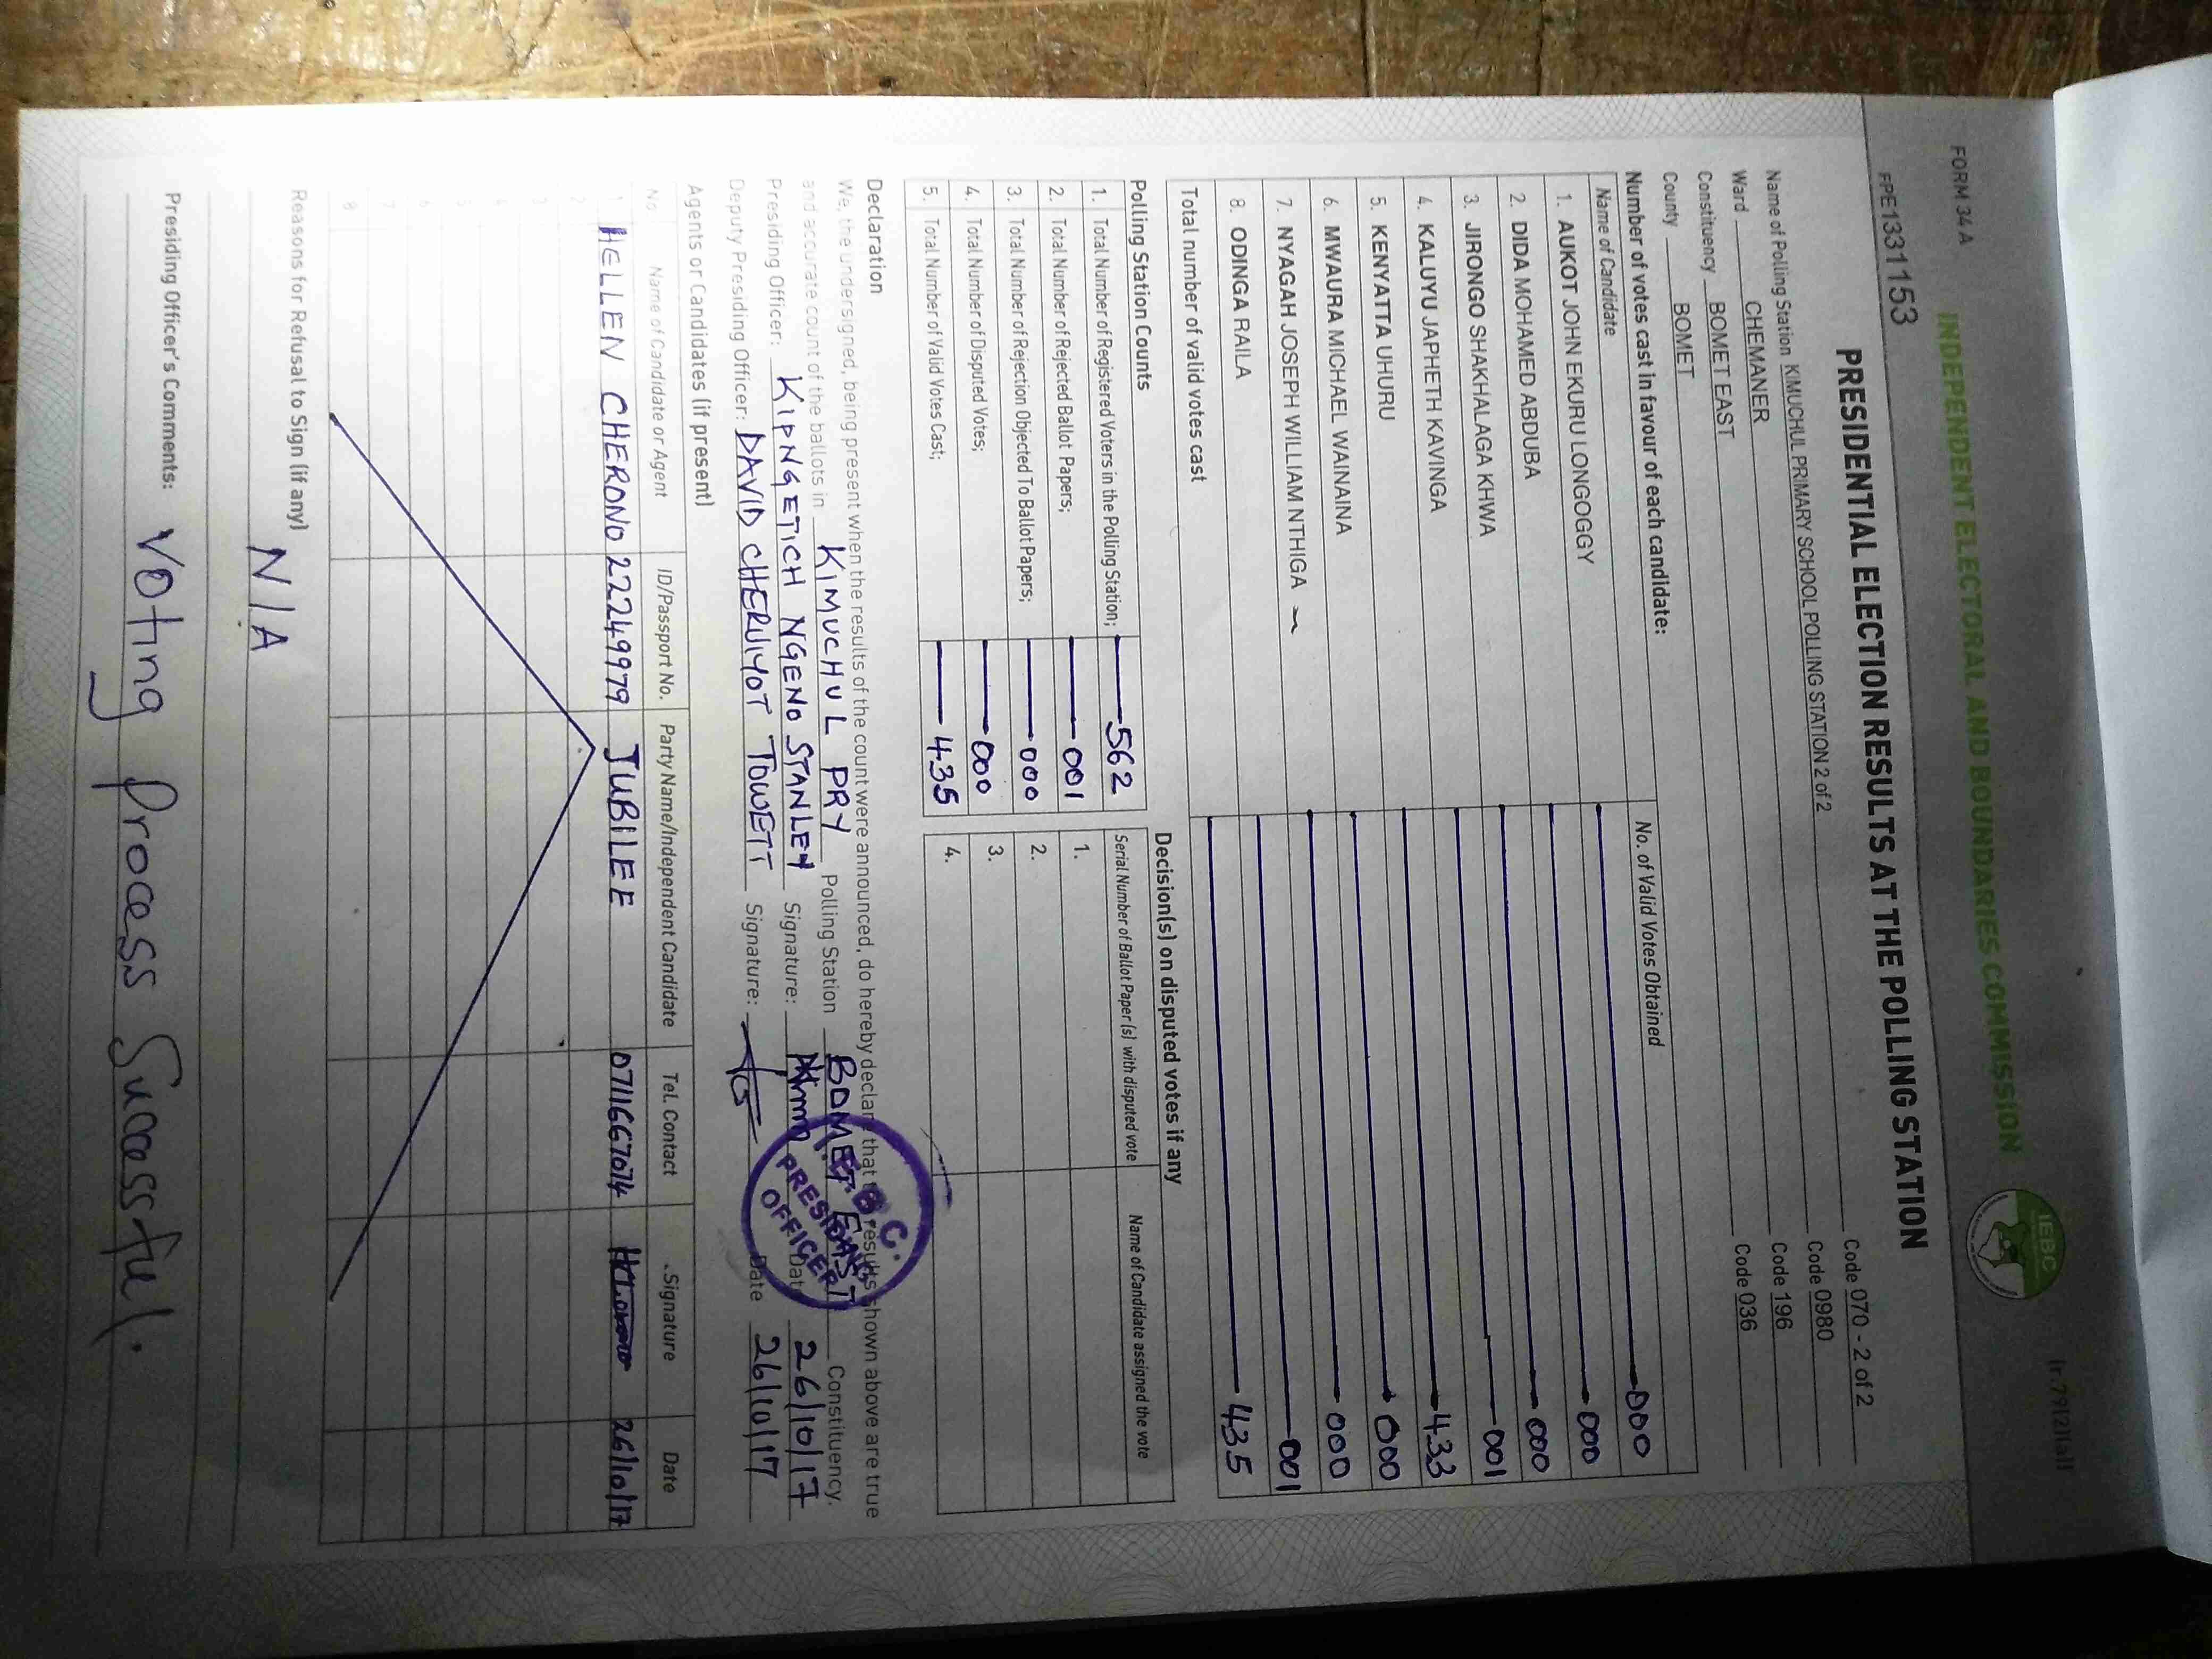 Ir.7912(1a)
FORM 34 A
INDEPENDENT ELECTORAL AND BOUNDARIES COMMISSION
IEBC
FPE1331153
PRESIDENTIAL ELECTION RESULTS AT THE POLLING STATION
Name of Polling Station KIMUCHUL PRIMARY SCHOOL POLLING STATION 2 of 2 Code 070 - 2 of 2
Ward CHEMANER Code 0980
Constituency BOMET EAST Code 196
County BOMET Code 036
Number of votes cast in favour of each candidate:
Name of Candidate No. of Valid Votes Obtained
1. AUKOT JOHN EKURU LONGOGGY 000
2. DIDA MOHAMED ABDUBA 000
3. JIRONGO SHAKHALAGA KHWA 000
4. KALUYU JAPHETH KAVINGA 001
5. KENYATTA UHURU 433
6. MWAURA MICHAEL WAINAINA 000
7. NYAGAH JOSEPH WILLIAM NTHIGA 000
8. ODINGA RAILA 001
Total number of valid votes cast 435
Polling Station Counts
1. Total Number of Registered Voters in the Polling Station; 562
2. Total Number of Rejected Ballot Papers; 001
3. Total Number of Rejection Objected To Ballot Papers; 000
4. Total Number of Disputed Votes; 000
5. Total Number of Valid Votes Cast; 435
Decision(s) on disputed votes if any
Serial Number of Ballot Paper (s) with disputed vote Name of Candidate assigned the vote
1.
2.
3.
4.
Declaration
We, the undersigned, being present when the results of the count were announced, do hereby declare that the results shown above are true
and accurate count of the ballots in KIMUCHUL PRY Polling Station BOMET EAST Constituency.
Presiding Officer: KIPNGETICH NGENO STANLEY Signature: Date 26/10/17
Deputy Presiding Officer: DAVID CHERUIYOT TOWETT Signature: Date 26/10/17
I.E.B.C.
PRESIDING
OFFICER
Agents or Candidates (if present)
No Name of Candidate or Agent ID/Passport No. Party Name/Independent Candidate Tel. Contact Signature Date
1 HELLEN CHERONO 22249979 JUBILEE 0711667074 26/10/17
2
3
4
5
6
7
8
Reasons for Refusal to Sign (if any)
N/A
Presiding Officer's Comments: Voting process Successful.